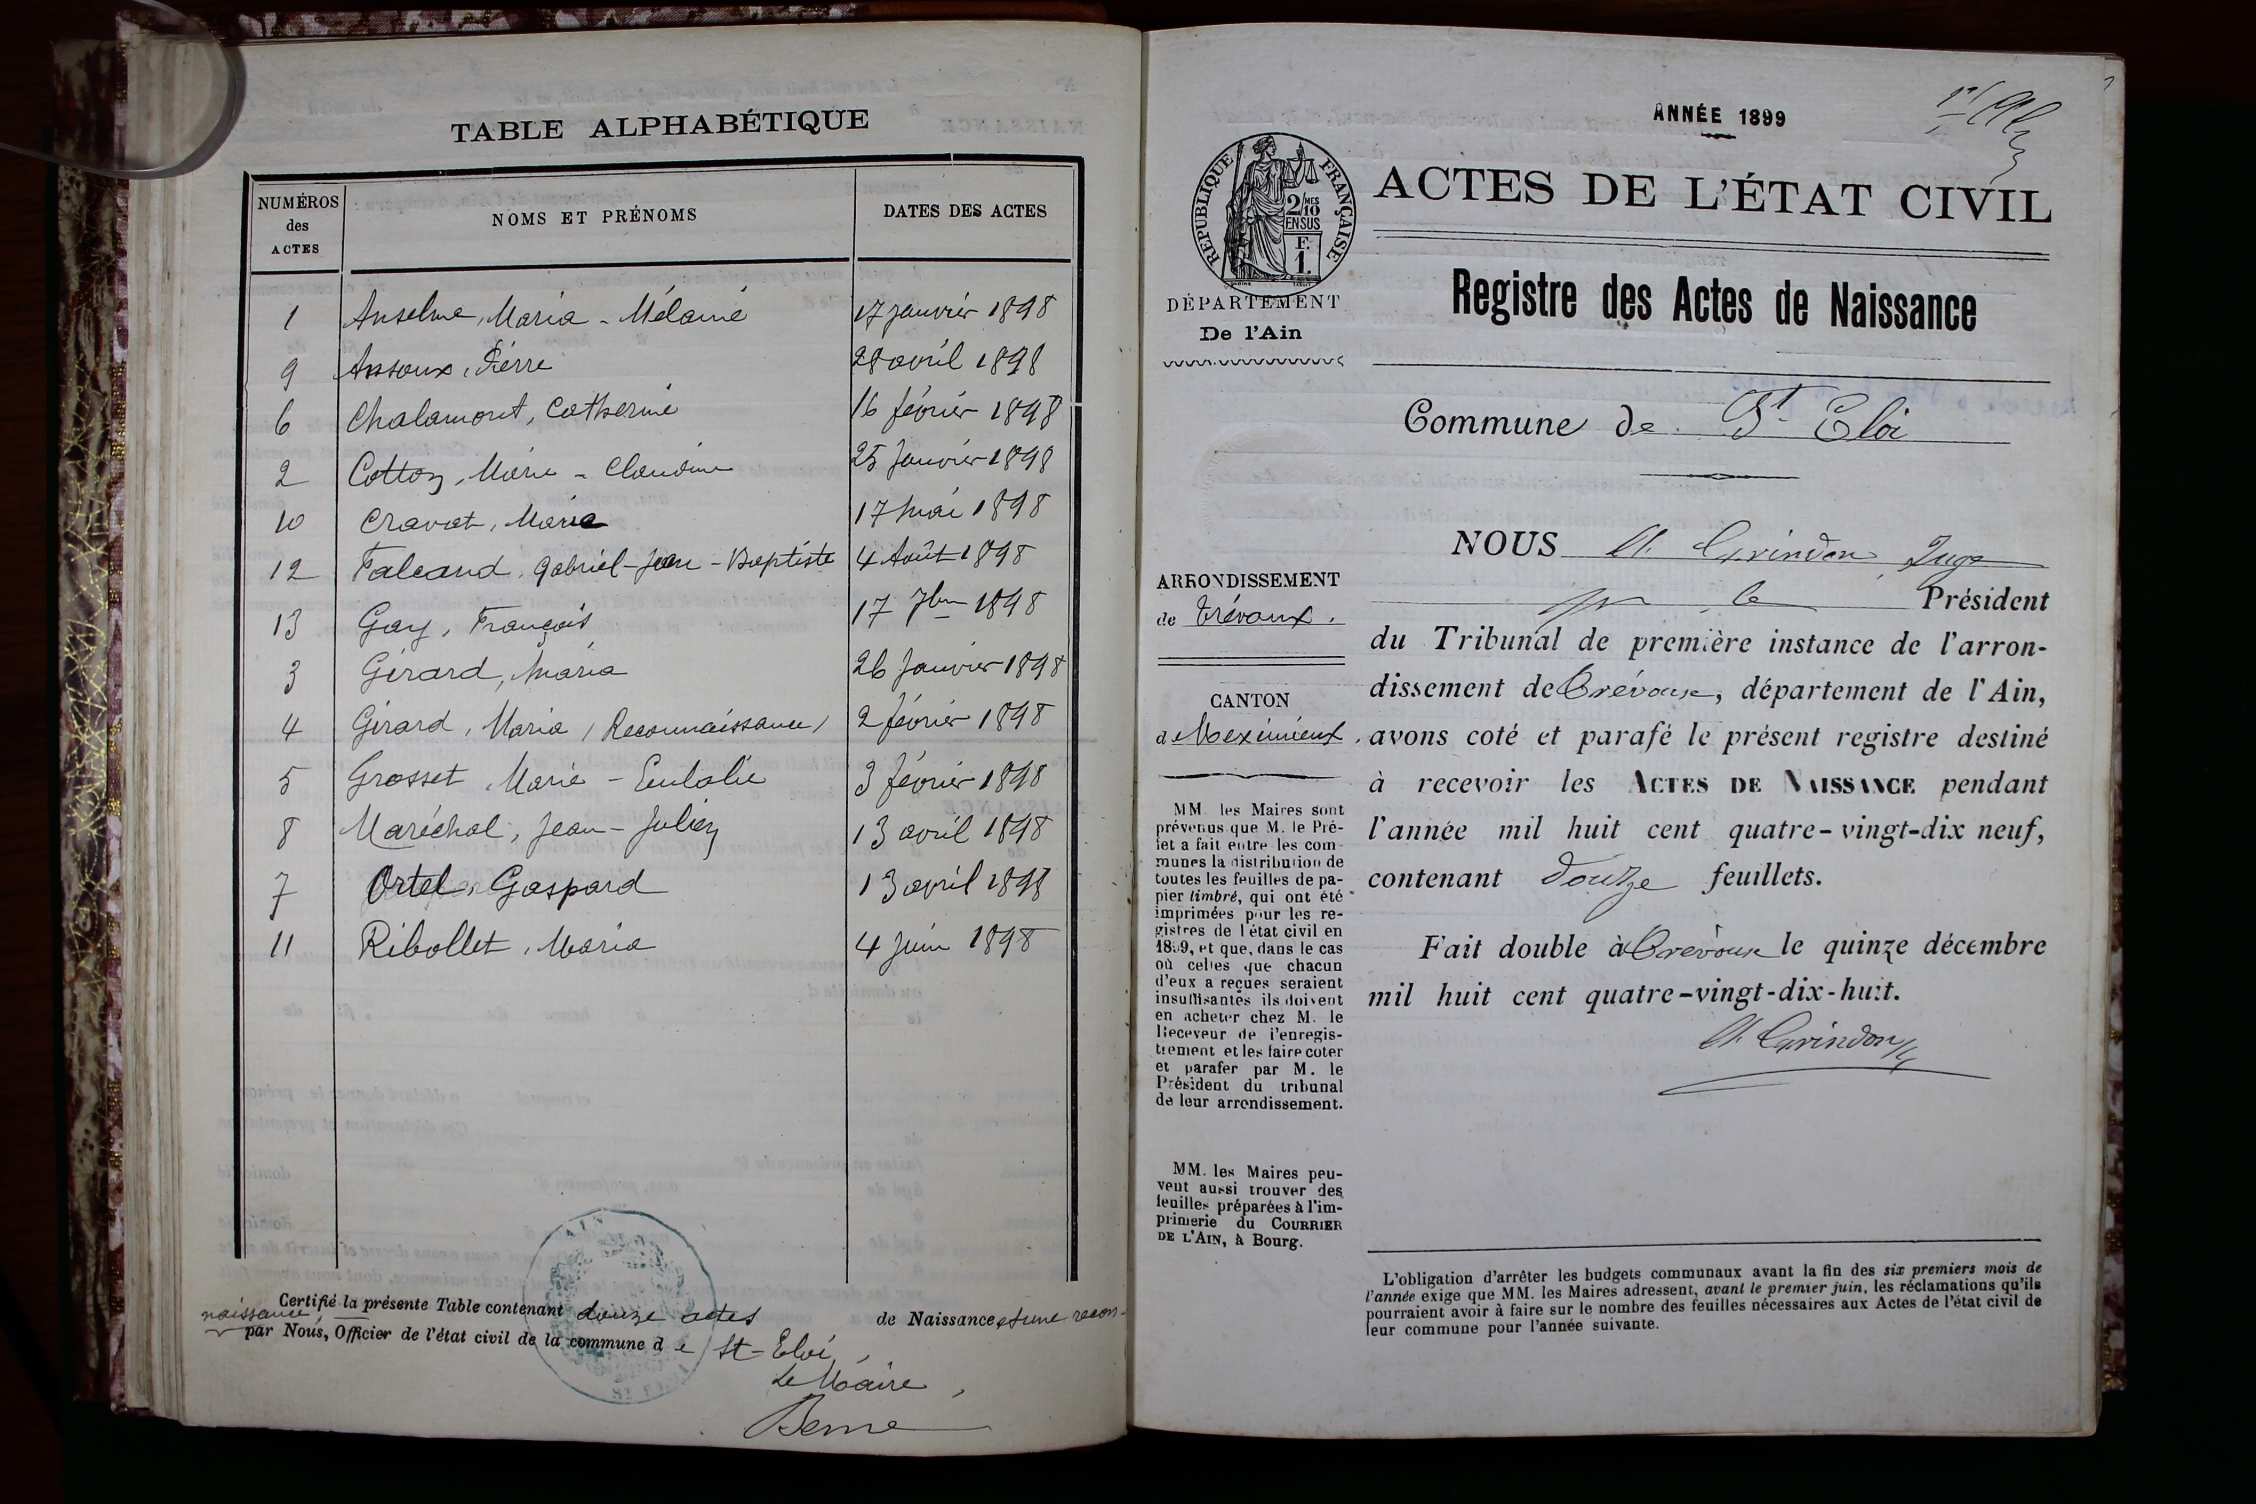 TABLE ALPHABÉTIQUE
NUMÉROS
des
ACTES
NOMS ET PRÉNOMS
DATES DES ACTES
1 Anselme, Maria - Mélanie 17 janvier 1898
9 Ansoux, Pierre 28 avril 1898
6 Chalamont, Catherine 16 février 1898
2 Cotton, Marie - Claudine 25 Janvier 1898
10 Cravat, Maria 17 Mai 1898
12 Falcand, Gabriel-Jean-Baptiste 4 Août 1898
13 Gay, François 17 7bre 1898
3 Girard, Maria 26 Janvier 1898
4 Girard, Maria (Reconnaissance) 2 février 1898
5 Grosset, Marie - Eulalie 3 février 1898
8 Maréchal, Jean - Julien 13 avril 1898
7 Ortel, Gaspard 13 avril 1898
11 Ribollet, Maria 4 Juin 1898
Certifié la présente Table contenant douze actes de Naissance et une recon-
naissance
par Nous, Officier de l'état civil de la commune de St-Eloi,
Le Maire,
Berne
AIN
ANNÉE 1899
RÉPUBLIQUE FRANÇAISE
2/10 MES
EN SUS
F.
1.
ACTES DE L'ÉTAT CIVIL
Registre des Actes de Naissance
DÉPARTEMENT
De l'Ain
Commune de St Eloi
NOUS Grindon Juge
pr le Président
du Tribunal de première instance de l'arron-
dissement de Trévoux, département de l'Ain,
avons coté et parafé le présent registre destiné
à recevoir les ACTES DE NAISSANCE pendant
l'année mil huit cent quatre-vingt-dix neuf,
contenant douze feuillets.
Fait double à Trévoux le quinze décembre
mil huit cent quatre-vingt-dix-huit.
Grindon
ARRONDISSEMENT
de Trévoux.
CANTON
de Meximieux.
MM. les Maires sont
prévenus que M. le Pré-
fet a fait entre les com-
munes la distribution de
toutes les feuilles de pa-
pier timbré, qui ont été
imprimées pour les re-
gistres de l'état civil en
1899, et que, dans le cas
où celles que chacun
d'eux a reçues seraient
insuffisantes ils doivent
en acheter chez M. le
Receveur de l'enregis-
trement et les faire coter
et parafer par M. le
Président du tribunal
de leur arrondissement.
MM. les Maires peu-
vent aussi trouver des
feuilles préparées à l'im-
primerie du COURRIER
DE L'AIN, à Bourg.
L'obligation d'arrêter les budgets communaux avant la fin des six premiers mois de
l'année exige que MM. les Maires adressent, avant le premier juin, les réclamations qu'ils
pourraient avoir à faire sur le nombre des feuilles nécessaires aux Actes de l'état civil de
leur commune pour l'année suivante.